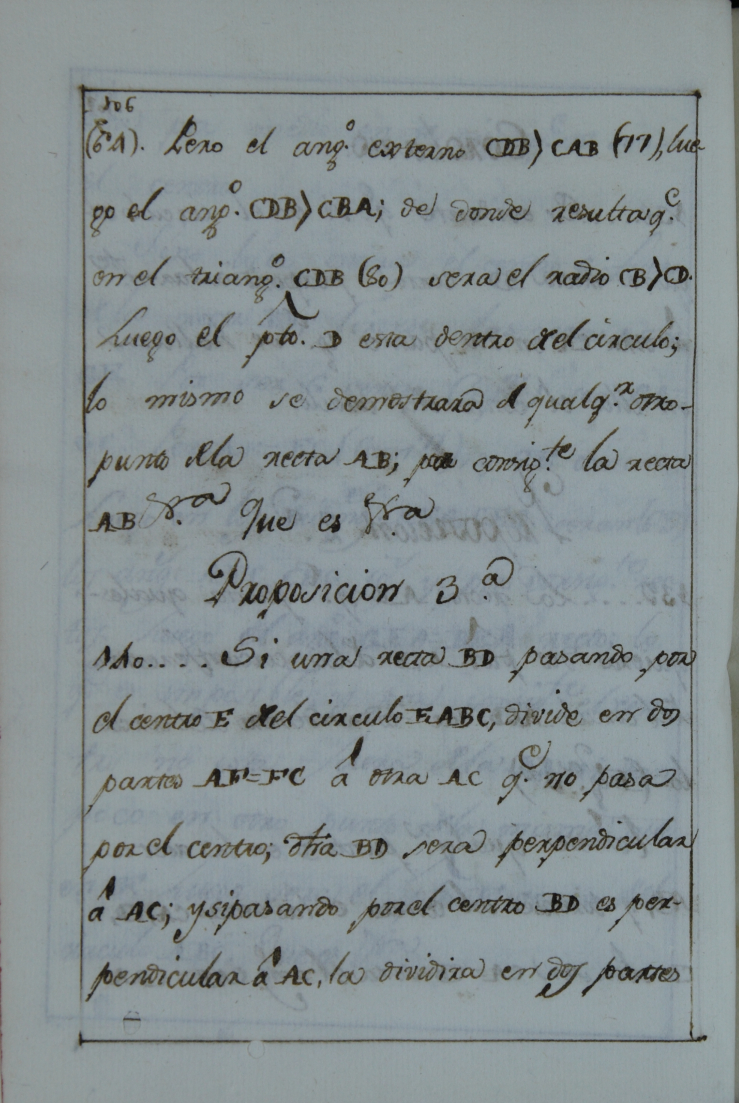 106
(64). Pero el ang.º externo CDB > CAB (77), lue-
go el ang.º CDB > CBA; de donde resulta q.e
en el triang.º CDB (80) sera el radio CB > CD.
Luego el pto. D esta dentro del circulo;
lo mismo se demostrará d qualq.r otro
punto de la recta AB; por consig.te la recta
AB &.ra Que es &.ra
Proposicion 3.a
140.... Si una recta BD pasando por
el centro E del circulo EABC, divide en dos
partes AF=FC á otra AC q.e no pasa
por el centro; dha BD sera perpendicular
á AC; y si pasando por el centro BD es per-
pendicular á AC, la dividira en dos partes